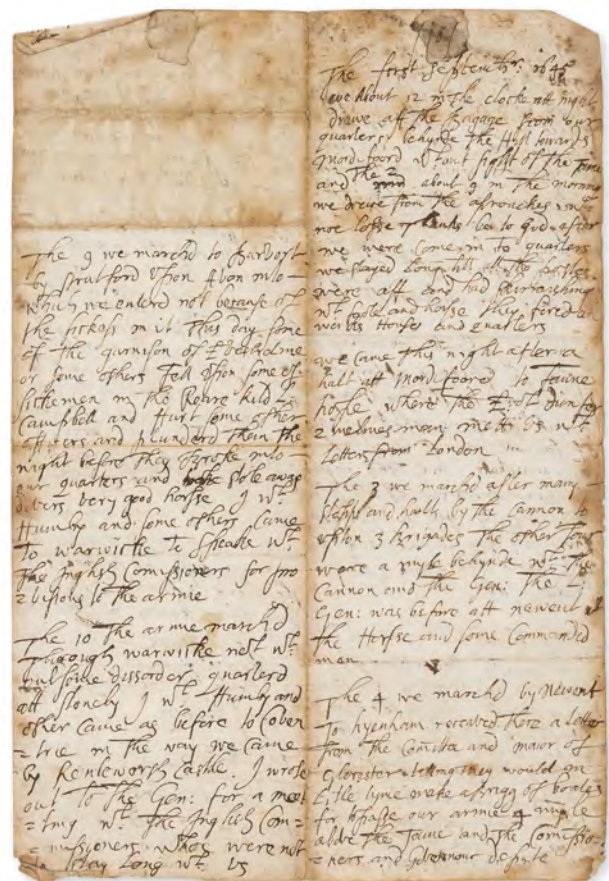 The 9 we marchd to Barfoist
by stratford upon Avon into
which we enterd not because of
the sicknes in it This day some
of the garnison of
or some others fell upon some of
sickemen in the Reare kild
Campbell and Hurt some other
officers and plunderd them the
night before they Broke into
our quarters and stole away
divers very good horsse J wt
Humby and some others Came
to warwicke to speake wt
the Inglish Comissioners for pro
=visions to the armie
The 10 the armie marchd
Through warwicke not wt
out some dissorder quarterd
att stoneby J wt Humby and
other Came as before to Coven
=trie in the way we Came
by Kenleworth Castle. J wrote
out to the Gen: for a mee
=ting wt the Inglish Com=
=missioners whos were not
to stay Long wt us
The first September: 1645
we about 12 in the clocke att night
drawe aff the Bagage from our
quarters behynde the Hill towards
Mordifoord wtout sight of the Toune
and the 2 about 9 in the morning
we drewe from the aproaches wt
noe losse Thanks bee to god after
we were come in to quarters
we stayed Long till all the
were aff and had skirmishing
wt foote and horsse they fired an
Horses and quarters
we Came this night after a
halt att Mordifoord to
horsse where the
2 men mett us wt
letters from London
The 3 we marchd after many
and halts by the Cannon to
upton 3 Brigades the other four
were a myle behynde wt the
Cannon and the Gen: The L
Gen: was before att newent wt
the Horsse and some Commanded
men
The 4 we marchd by Newent
To hyenham receaved there a letter
from the Comitte and maior of
Glocester telling they would in
Litle tyme make a brigg of boates
for to passe our armie 4 myle
above the Toune and the Comissio=
=ners and Governour